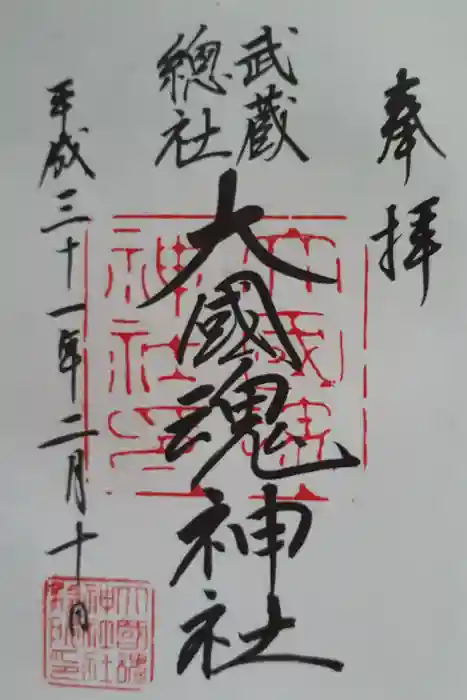 奉拝
武蔵
總社
大國魂神社
平成三十一年二月十日
大國魂
神社印